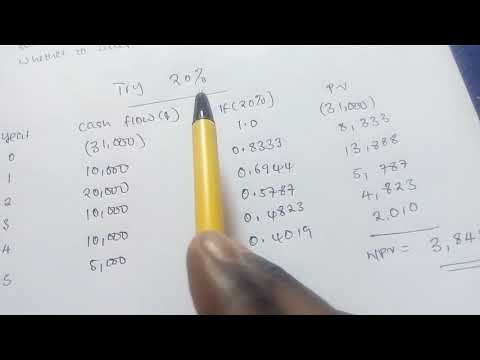 whether to
Try 20%
Year cash flow($) IF(20%) PV
0 (31,000) 1.0 (31,000)
1 10,000 0.8333 8,333
2 20,000 0.6944 13,888
3 10,000 0.5787 5,787
4 10,000 0.4823 4,823
5 5,000 0.4019 2,010
NPV = 3,84